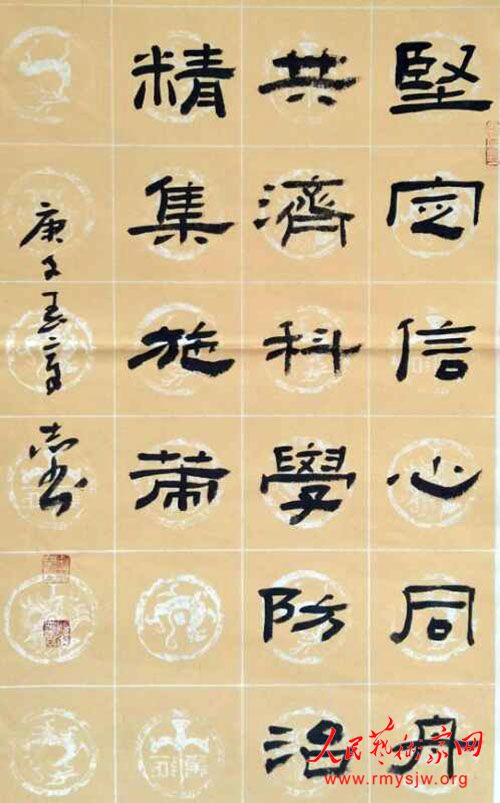 堅定信心同舟
共濟科學防治
精集施策
庚子
志书
人民藝術家网
www.rmysjw.org